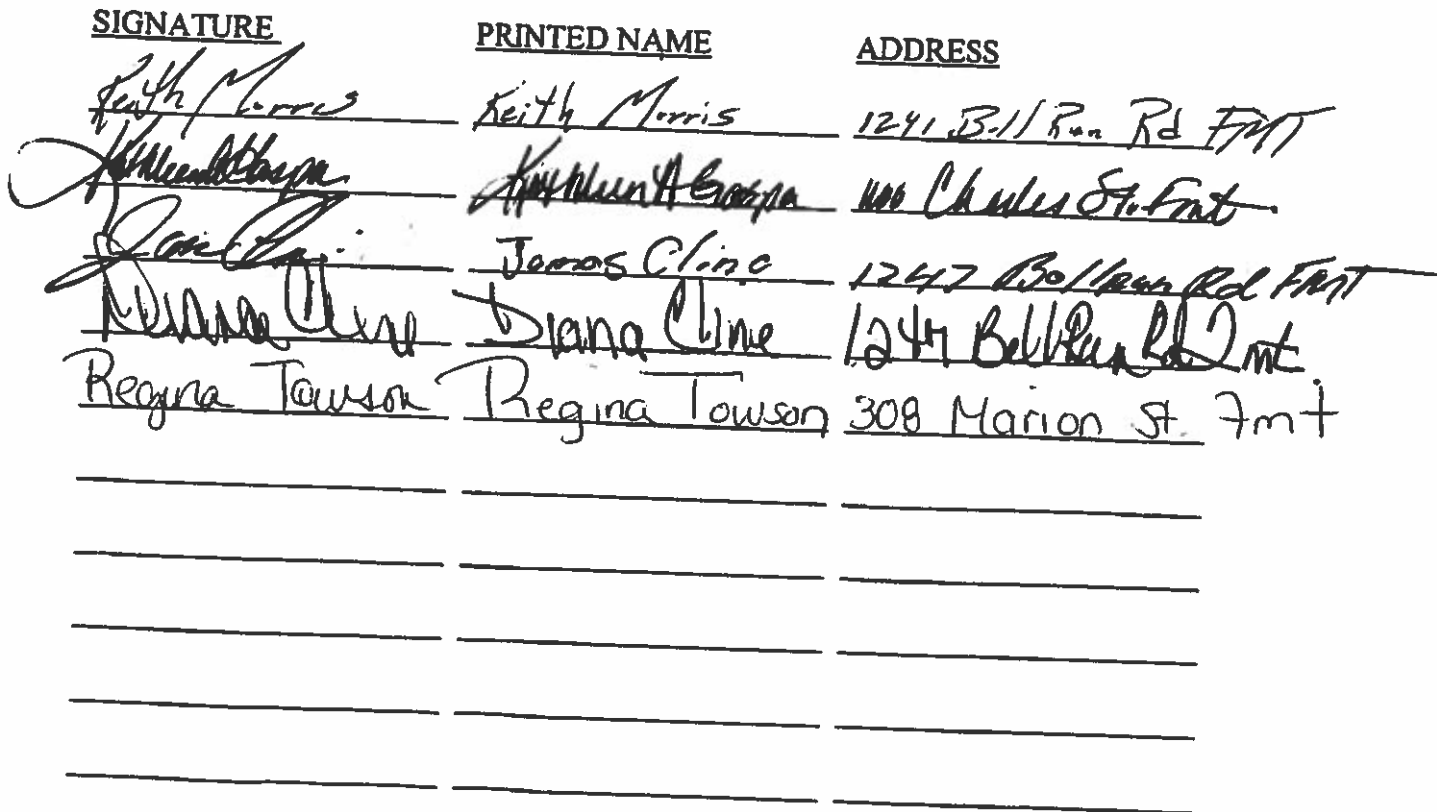 SIGNATURE PRINTED NAME ADDRESS
Keith Morris Keith Morris 1241 Bell Run Rd FMT
Kathleen A Kathleen A Charles St. Fmt
James Cline 1247 Bell Run Rd FMT
Diana Cline Diana Cline 1247 Bell Run Rd. Fmt.
Regina Towson Regina Towson 308 Marion St. Fmt